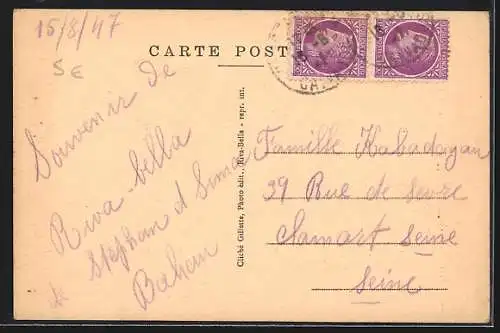 15/8/47
5€
CARTE POST
Souvenir de
Riva-bella
Stephan et Sima
Cliché Gillotte, Photo édit., Riva-Bella - repr. int.
Famille Kabadayan
39 Rue de Sevre
Clamart Seine
Seine